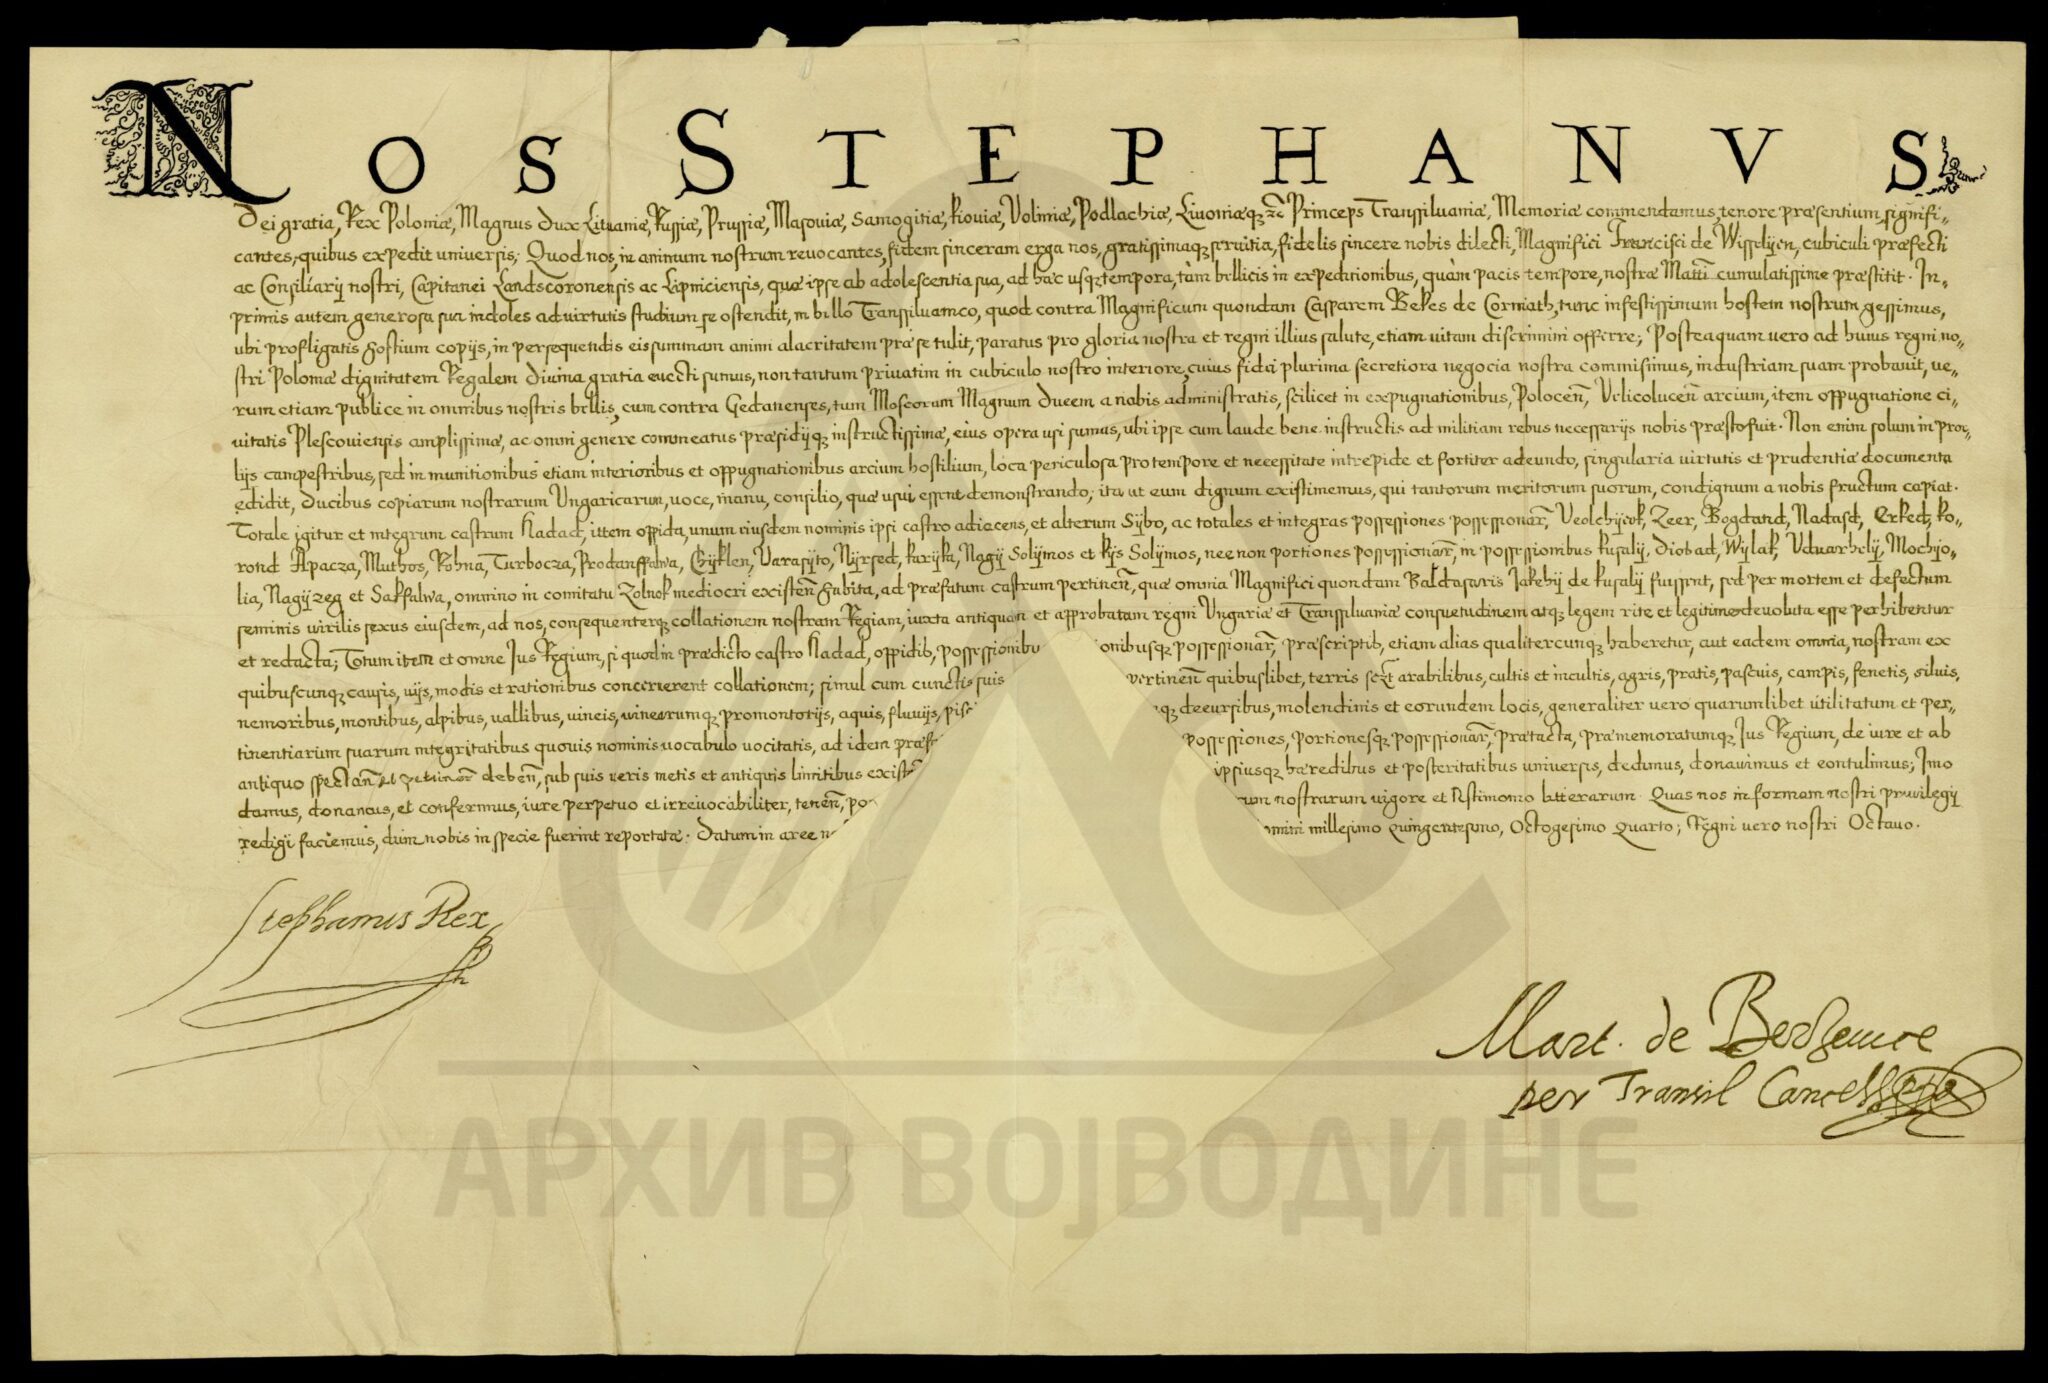 NOS STEPHANVS
Dei gratia, Rex Poloniæ, Magnus Dux Lituaniæ, Russiæ, Prussiæ, Masouiæ, Samogitiæ, Kiouiæ, Voliniæ, Podlachiæ, Liuoniæq; Princeps Transsiluaniæ, Memoriæ commendamus, tenore præsentium signifi=
cantes, quibus expedit universis; Quod nos, in animum nostrum reuocantes, fidem sinceram erga nos, gratissimaq; seruitia, fidelis sincere nobis dilecti, Magnifici Francisci de Wisselijen, cubiculi præfecti
ac Consiliarij nostri, Capitanei Landscoronensis ac Lipniciensis, quæ ipse ab adolescentia sua, ad hæc usq; tempora, tàm bellicis in expeditionibus, quàm pacis tempore, nostræ Matti cumulatissime præstitit. In=
primis autem generosa sua indoles ad uirtutis studium se ostendit, in bello Transsiluanico, quod contra Magnificum quondam Casparem Bekes de Corniath, tunc infestissimum hostem nostrum gessimus,
ubi profligatis hostium copijs, in persequendis eis summam animi alacritatem præ se tulit, paratus pro gloria nostra et regni illius salute, etiam uitam discrimini offerre; Posteaquam vero ad huius regni no=
stri Poloniæ dignitatem Regalem diuina gratia euecti sumus, non tantum priuatim in cubiculo nostro interiore, cuius fidei plurima secretiora negocia nostra commisimus, industriam suam probauit, ve=
rum etiam publice in omnibus nostris bellis, cum contra Gedanenses, tum Moscorum Magnum Ducem a nobis administratis, scilicet in expugnationibus, Polocen, Velicolucen arcium, item oppugnatione ci=
uitatis Plescouiensis amplissimæ, ac omni genere commeatus præsidijq; instructissimæ, eius opera usi sumus, ubi ipse cum laude bene instructis ad militiam rebus necessarijs nobis præsto fuit. Non enim solum in proe=
lijs campestribus, sed in munitionibus etiam interioribus et oppugnationibus arcium hostilium, loca periculosa pro tempore et necessitate intrepide et fortiter adeundo, singularia uirtutis et prudentiæ documenta
edidit, ducibus copiarum nostrarum Ungaricarum, uoce, manu, consilio, quæ usui essent demonstrando; ita ut eum dignum existimemus, qui tantorum meritorum suorum, condignum a nobis fructum capiat.
Totale igitur et integrum castrum Hadad, ittem oppida, unum eiusdem nominis ipsi castro adiacens, et alterum Sÿbo, ac totales et integras possessiones possessionar, Veolchijeok, Zeer, Bogdand, Nadasd, Erked, Ko=
rond Apacza, Muthos, Rohna, Turbocza, Prodanffalwa, Chijklen, Varasijto, Nijrsed, Karijka, Nagij Solijmos et Kijs Solijmos, nec non portiones possessionar, in possessionibus Kusalij, Diosad, Wijlak, Vduarhelij, Mochijo=
lia, Nagij zeg et Sakfalwa, omnino in comitatu Zolnok mediocri existen habita, ad præfatum castrum pertinen, quæ omnia Magnifici quondam Baldasaris Jakchij de Kusalij fuissent, sed per mortem et defectum
seminis uirilis sexus eiusdem, ad nos, consequenterq; collationem nostram Regiam, iuxta antiquam et approbatam regni Ungariæ et Transiluaniæ consuetudinem atq; legem rite et legitime deuoluta esse perhibentur
et redacta; Totum item et omne Jus Regium, si quod in prædicto castro Hadad, oppidis, possessionibu onibusq; possessionar, præscriptis, etiam alias qualitercunq; haberetur, aut eadem omnia, nostram ex
quibuscunq; causis, uijs, modis et rationibus concernerent collationem; simul cum cunctis suis pertinen quibuslibet, terris arabilibus, cultis et incultis, agris, pratis, pascuis, campis, fenetis, siluis,
nemoribus, montibus, alpibus, uallibus, uineis, uinearumq; promontorijs, aquis, fluuijs, pisc q; decursibus, molendinis et eorundem locis, generaliter uero quarumlibet utilitatum et per=
tinentiarum suarum integritatibus quouis nominis uocabulo uocitatis, ad idem præf possessiones, portionesq; possessionar, prætacta, præmemoratumq; Jus Regium, de iure et ab
antiquo spectan et pertinere deben, sub suis ueris metis et antiquis limitibus existen ipsiusq; hæredibus et posteritatibus uniuersis, dedimus, donauimus et contulimus; Imo
damus, donamus, et conferimus, iure perpetuo et irreuocabiliter, tenen, po rum nostrarum uigore et testimonio litterarum. Quas nos in formam nostri priuilegij
redigi faciemus, dum nobis in specie fuerint reportatæ. Datum in arce n omini millesimo Quingentesimo, Octogesimo Quarto; Regni uero nostri Octauo.
Stephanus Rex
Mart. de Berzeuice
per Transil Cancell
АРХИВ ВОЈВОДИНЕ